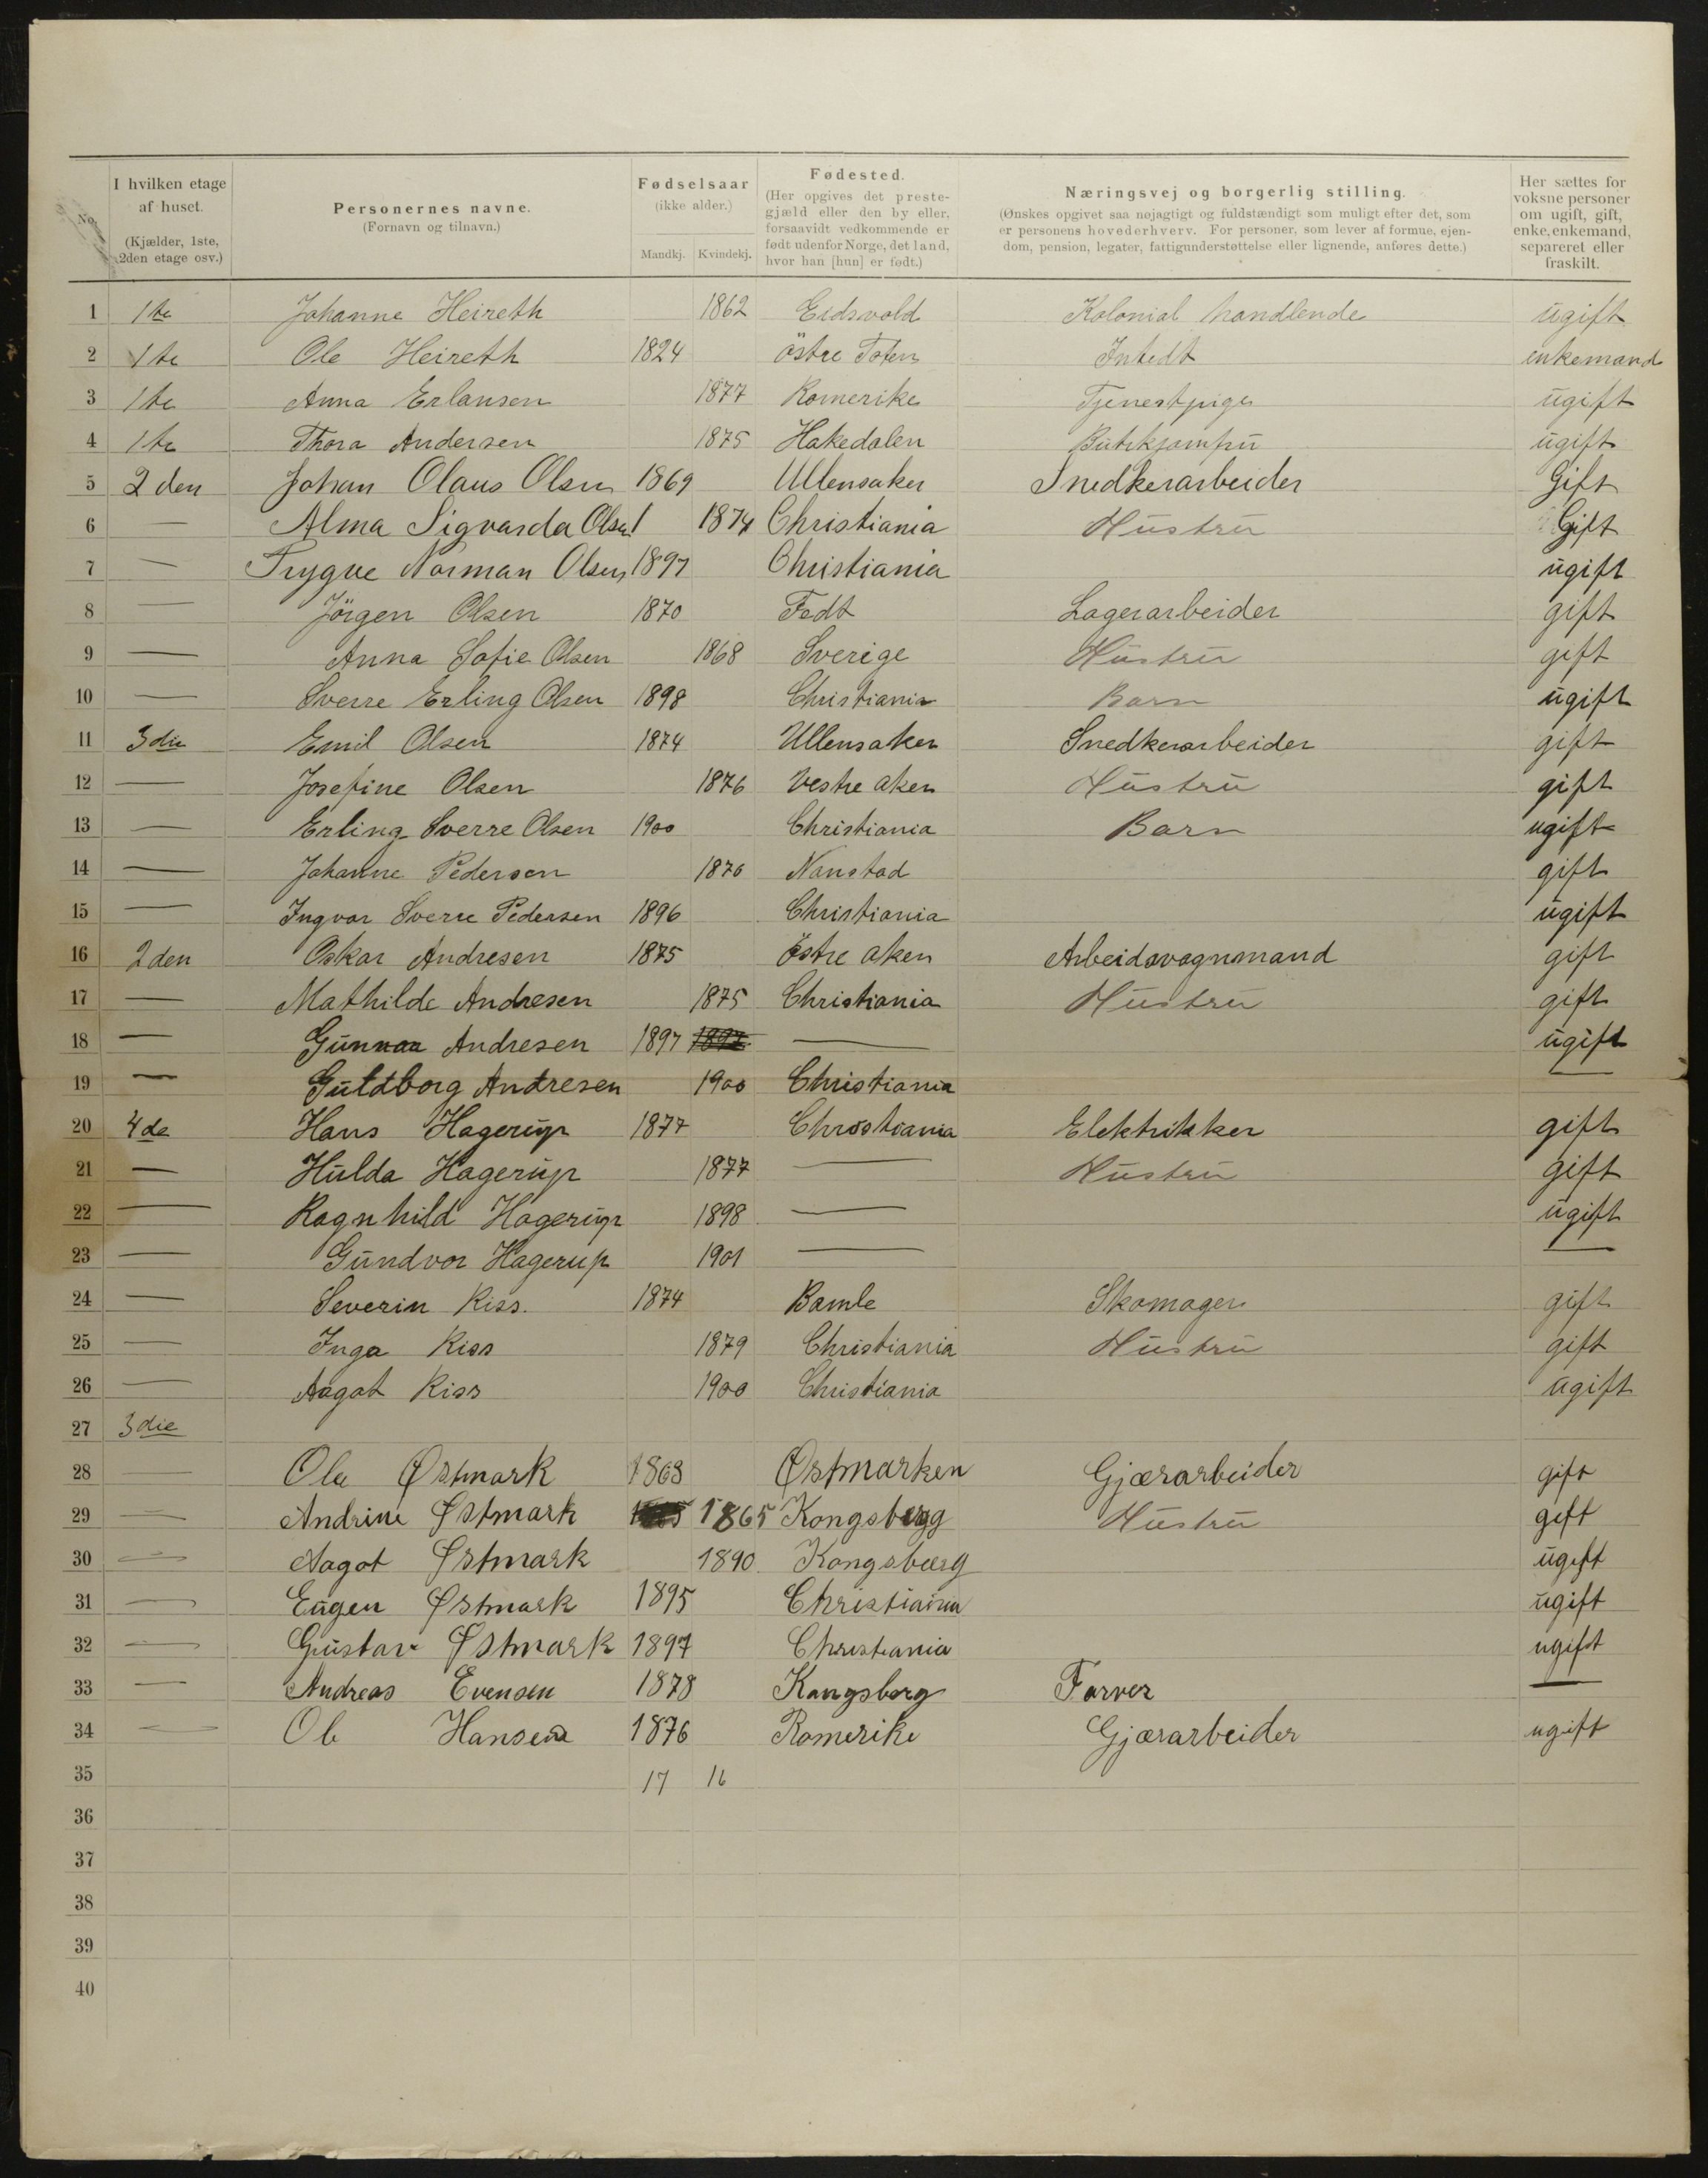 No.
I hvilken etage af huset. (Kjælder, 1ste, 2den etage osv.)
Personernes navne. (Fornavn og tilnavn.)
Fødselsaar (ikke alder.) Mandkj. Kvindekj.
Fødested. (Her opgives det prestegjæld eller den by eller, forsaavidt vedkommende er født udenfor Norge, det land, hvor han [hun] er født.)
Næringsvej og borgerlig stilling. (Ønskes opgivet saa nøjagtigt og fuldstændigt som muligt efter det, som er personens hovederhverv. For personer, som lever af formue, ejendom, pension, legater, fattigunderstøttelse eller lignende, anføres dette.)
Her sættes for voksne personer om ugift, gift, enke, enkemand, separeret eller fraskilt.
1 1te Johanne Heireth 1862 Eidsvold Kolonial handlende ugift
2 1te Ole Heireth 1824 östre Toten Intedt enkemand
3 1te Anna Erlansen 1877 Romerike Tjenestpige ugift
4 1te Thora Andersen 1875 Hakedalen Butikjomfru ugift
5 2den Johan Olaus Olsen 1869 Ullensaker Snedkerarbeider Gift
6 — Alma Sigvarda Olsen 1874 Christiania Hustru Gift
7 — Trygve Norman Olsen 1897 Christiania ugift
8 — Jörgen Olsen 1870 Fedt Lagerarbeider gift
9 — Anna Sofie Olsen 1868 Sverige Hustru gift
10 — Sverre Erling Olsen 1898 Christiania Barn ugift
11 3die Emil Olsen 1874 Ullensaker Snedkerarbeider gift
12 — Josefine Olsen 1876 Vestre aker Hustru gift
13 — Erling Sverre Olsen 1900 Christiania Barn ugift
14 — Johanne Pedersen 1876 Nanstad gift
15 — Ingvar Sverre Pedersen 1896 Christiania ugift
16 2den Oskar Andresen 1875 Östre aker Arbeidsvognmand gift
17 — Mathilde Andresen 1875 Christiania Hustru gift
18 — Gunnar Andresen 1897 1897 — ugift
19 — Guldborg Andresen 1900 Christiania —
20 4de Hans Hagerup 1877 Christiania Elektrikker gift
21 — Hulda Hagerup 1877 — Hustru gift
22 — Ragnhild Hagerup 1898 — ugift
23 — Gundvor Hagerup 1901 — —
24 — Severin Kiss. 1874 Bamle Skomager gift
25 — Inga Kiss 1879 Christiania Hustru gift
26 — Aagot Kiss 1900 Christiania ugift
27 3die
28 — Ole Østmark 1868 Østmarken Gjærarbeider gift
29 — Andrine Østmark 1865 Kongsberg Hustru gift
30 — Aagot Østmark 1890 Kongsberg ugift
31 — Eugen Østmark 1895 Christiania ugift
32 — Gustav Østmark 1897 Christiania ugift
33 — Andreas Evensen 1878 Kongsberg Farver —
34 — Ole Hansen 1876 Romerike Gjærarbeider ugift
35 17 16
36
37
38
39
40